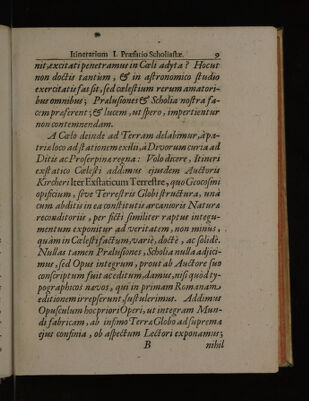 Itinerarium I. Præfatio Scholiastæ. 9
nit, excitati penetramus in Cœli adyta? Hoc ut
non doctis tantùm, & in astronomico studio
exercitatis fas sit, sed cœlestium rerum amatori-
bus omnibus; Prælusiones & Scholia nostra fa-
cem præferent; & lucem, ut spero, impertientur
non contemnendam.
A Cœlo deinde ad Terram delabimur, à pa-
tria loco ad stationem exilii, à Divorum curia ad
Ditis ac Proserpinæ regna: Volo dicere, Itineri
exstatico Cœlesti addimus ejusdem Auctoris
Kircheri Iter Exstaticum Terrestre, quo Geocosmi
opificium, sive Terrestris Globi structura, unà
cum abditis in ea constitutis arcanioris Naturæ
reconditoriis, per ficti similiter raptus integu-
mentum exponitur ad veritatem, non minus,
quàm in Cœlesti factum, variè, doctè, ac solidè.
Nullas tamen Prælusiones, Scholia nulla adjici-
mus, sed Opus integrum, prout ab Auctore suo
conscriptum fuit ac editum, damus, nisi quod ty-
pographicos nævos, qui in primam Romanam
editionem irrepserunt, sustulerimus. Addimus
Opusculum hoc priori Operi, ut integram Mun-
di fabricam, ab infimo Terræ Globo ad suprema
ejus confinia, ob aspectum Lectori exponamus;
B nihil